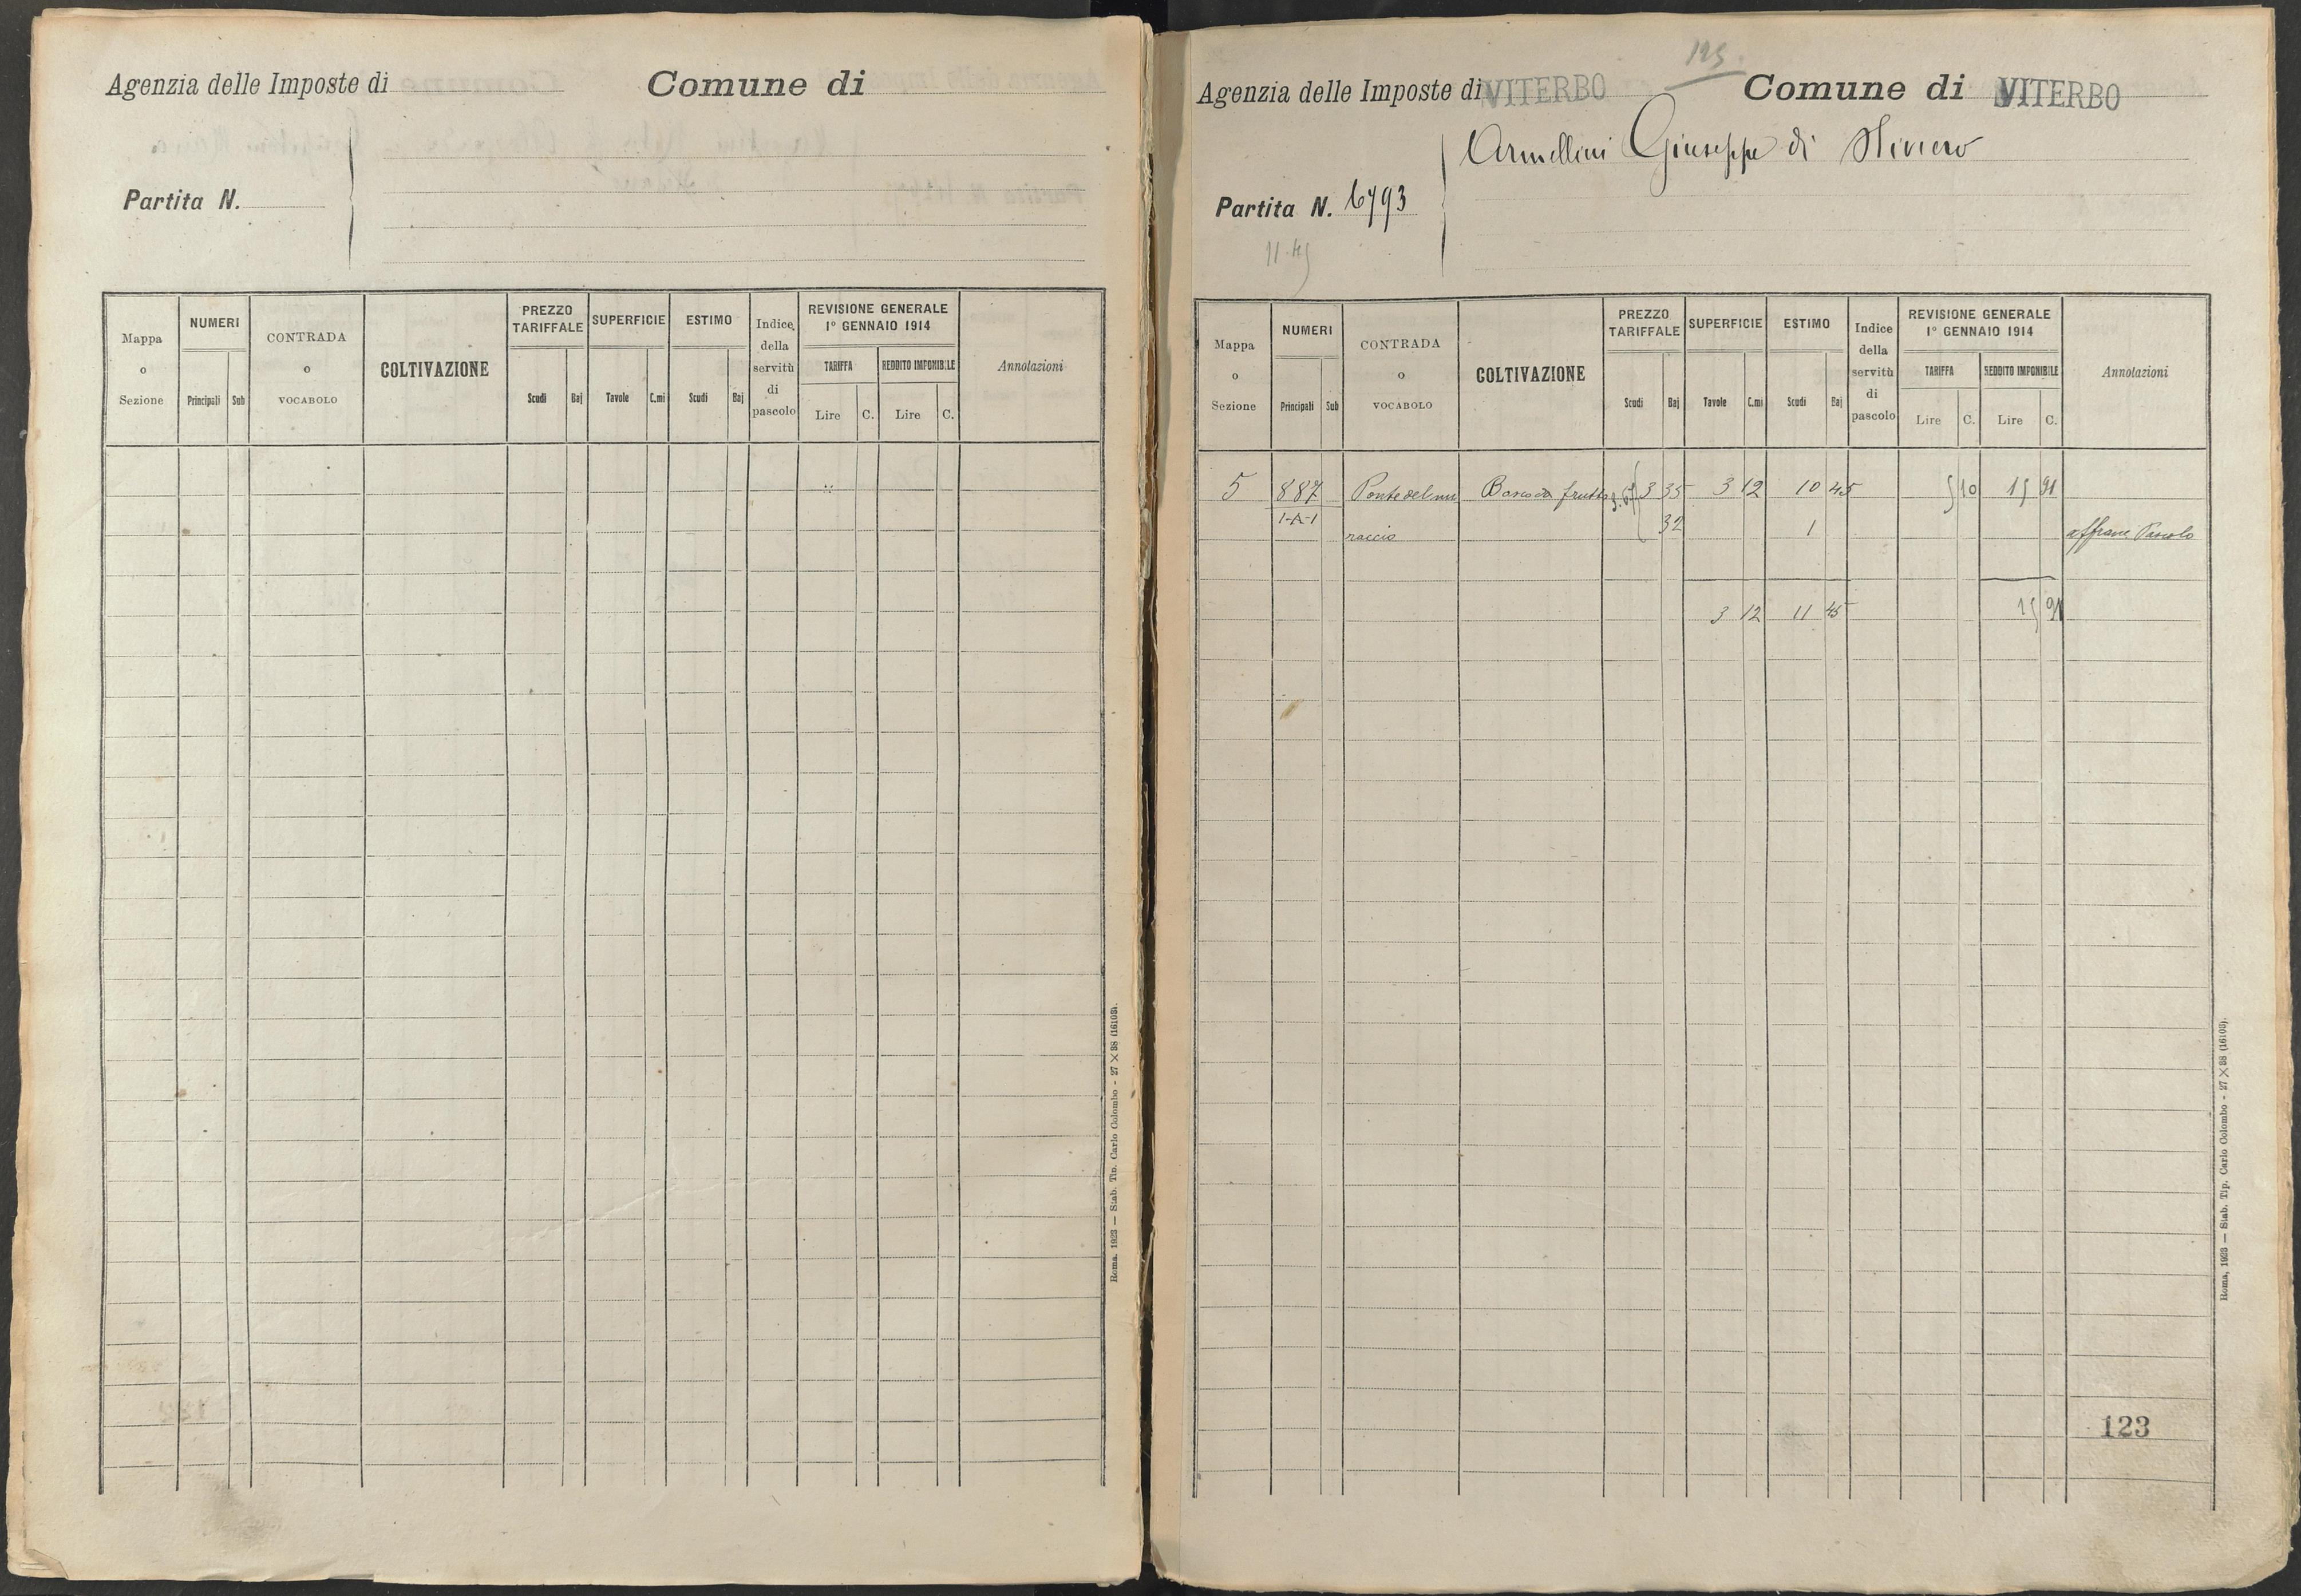 Agenzia delle Imposte di Comune di
Partita N.
Mappa o Sezione
NUMERI
Principali Sub
CONTRADA o VOCABOLO
COLTIVAZIONE
PREZZO TARIFFALE
Scudi Baj
SUPERFICIE
Tavole C.mi
ESTIMO
Scudi Baj
Indice della servitù di pascolo
REVISIONE GENERALE
1º GENNAIO 1914
TARIFFA
Lire C.
REDDITO IMPONIBILE
Lire C.
Annotazioni
Roma. 1923 — Stab. Tip. Carlo Colombo - 27 X 38 (16103).
123.
Agenzia delle Imposte di VITERBO Comune di VITERBO
Armellini Giuseppe di
Partita N. 6793
Mappa o Sezione
NUMERI
Principali Sub
CONTRADA o VOCABOLO
COLTIVAZIONE
PREZZO TARIFFALE
Scudi Baj
SUPERFICIE
Tavole C.mi
ESTIMO
Scudi Baj
Indice della servitù di pascolo
REVISIONE GENERALE
1º GENNAIO 1914
TARIFFA
Lire C.
REDDITO IMPONIBILE
Lire C.
Annotazioni
5 887 Ponte del mu Bosco da frutto 3.67 3 35 3 12 10 45 5 10 15 91
1-A-1 raccio 32 1 affranc. Pascolo
3 12 11 45 15 91
123
Roma, 1923 — Stab. Tip. Carlo Colombo - 27 X 38 (16103).